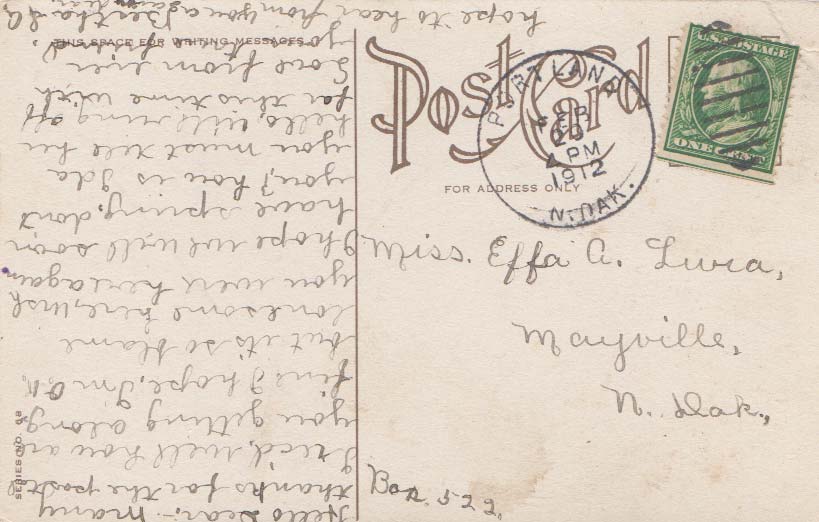 THIS SPACE FOR WRITING MESSAGES
Post Card
FOR ADDRESS ONLY
U.S. POSTAGE
ONE CENT
PORTLAND
FEB
20
4 PM
1912
N. DAK.
Miss. Effa A.
Mayville,
N. Dak.,
Box. 522.
SERIES NO.
Hello Dear;- Many
thanks for the postel
I recd, well how are
you getting along,
fine I hope, I'm O.K.
but it's so blame
lonesome here, wish
you were here again
I hope we will soon
have spring, don't
you, how is Ida
you must tell her
hello, will ring off
for this time with
Love from
hope to hear from you again
Bertha